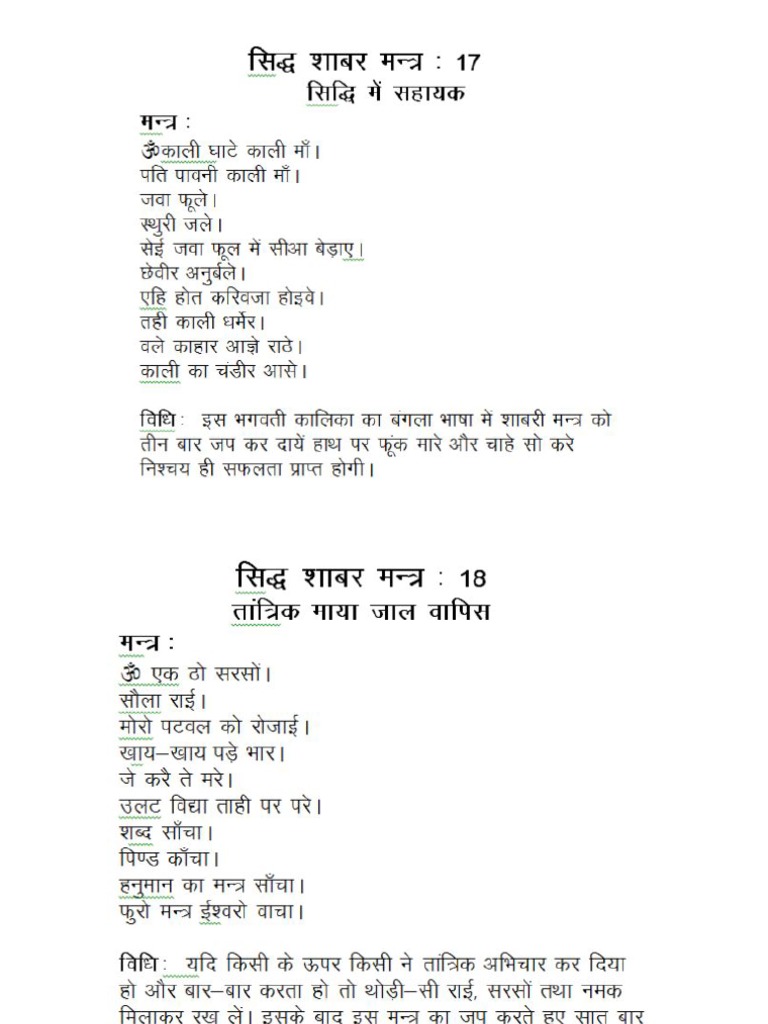 सिद्ध शाबर मन्त्र : 17
सिद्धि में सहायक
मन्त्र :
ॐकाली घाटे काली माँ।
पति पावनी काली माँ।
जवा फूले।
स्थुरी जले।
सेई जवा फूल में सीआ बेड़ाए।
छेवीर अनुर्बले।
एहि होत करिवजा होइवे।
तही काली धर्मेर।
वले काहार आज्ञे राठे।
काली का चंडीर आसे।
विधि : इस भगवती कालिका का बंगला भाषा में शाबरी मन्त्र को
तीन बार जप कर दायें हाथ पर फूंक मारे और चाहे सो करे
निश्चय ही सफलता प्राप्त होगी।
सिद्ध शाबर मन्त्र : 18
तांत्रिक माया जाल वापिस
मन्त्र :
ॐ एक ठो सरसों।
सौला राई।
मोरो पटवल को रोजाई।
खाय–खाय पड़े भार।
जे करै ते मरे।
उलट विद्या ताही पर परे।
शब्द साँचा।
पिण्ड काँचा।
हनुमान का मन्त्र साँचा।
फुरो मन्त्र ईश्वरो वाचा।
विधि : यदि किसी के ऊपर किसी ने तांत्रिक अभिचार कर दिया
हो और बार–बार करता हो तो थोड़ी–सी राई, सरसों तथा नमक
मिलाकर रख लें। इसके बाद इस मन्त्र का जप करते हुए सात बार